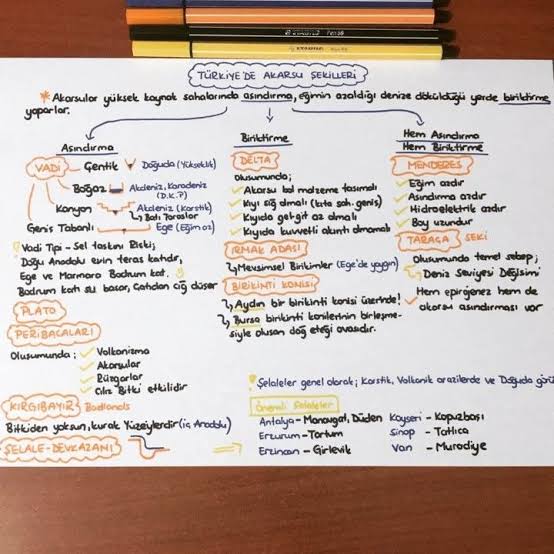 TÜRKİYE'DE AKARSU ŞEKİLLERİ
* Akarsular yüksek kaynak sahalarında aşındırma, eğimin azaldığı denize döküldüğü yerde biriktirme
yaparlar.
Aşındırma
VADİ
Çentik Doğuda (Yükseklik)
Boğaz Akdeniz, Karadeniz
(D.K.P)
Kanyon Akdeniz (Karstik)
Batı Toroslar
Geniş Tabanlı Ege (Eğim az)
! Vadi Tipi - Sel taşkını Riski;
Doğu Anadolu evin teras katıdır,
Ege ve Marmara Bodrum kat.
Bodrum katı su basar, Çatıdan çığ düşer
PLATO
PERİBACALARI
Oluşumunda; Volkanizma
Akarsular
Rüzgarlar
Cılız Bitki etkilidir
KIRGIBAYIR Badlands
Bitkiden yoksun, kurak Yüzeylerdir (İç Anadolu)
ŞELALE-DEVKAZANI
Biriktirme
DELTA
Oluşumunda;
Akarsu bol malzeme taşımalı
Kıyı sığ olmalı (kıta sah. geniş)
Kıyıda gelgit az olmalı
Kıyıda kuvvetli akıntı olmamalı
IRMAK ADASI
Mevsimsel Birikimler (Ege'de yaygın)
BİRİKİNTİ KONİSİ
Aydın bir birikinti konisi üzerinde!
Bursa birikinti konilerinin birleşme-
siyle oluşan dağ eteği ovasıdır.
Hem Aşındırma
Hem Biriktirme
MENDERES
Eğim azdır
Aşındırma azdır
Hidroelektrik azdır
Boy uzundur
TARAÇA SEKİ
Oluşumunda temel sebep;
Deniz Seviyesi Değişimi
Hem epirojenez hem de
akarsu aşındırması var
! Şelaleler genel olarak; Karstik, Volkanik arazilerde ve Doğuda görü
Önemli Şelaleler
Antalya - Manavgat, Düden Kayseri - Kapuzbaşı
Erzurum - Tortum Sinop - Tatlıca
Erzincan - Girlevik Van - Muradiye